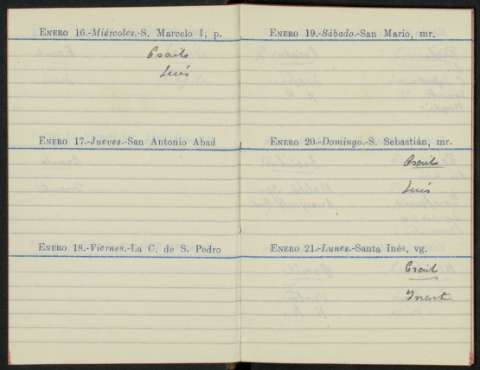 Enero 16.-Miércoles.-S. Marcelo I, p.
Luis
Enero 17.-Jueves.-San Antonio Abad
Enero 18.-Viernes.-La C. de S. Pedro
Enero 19.-Sábado.-San Mario, mr.
Enero 20.-Domingo.-S. Sebastián, mr.
Luis
Enero 21.-Lunes.-Santa Inés, vg.